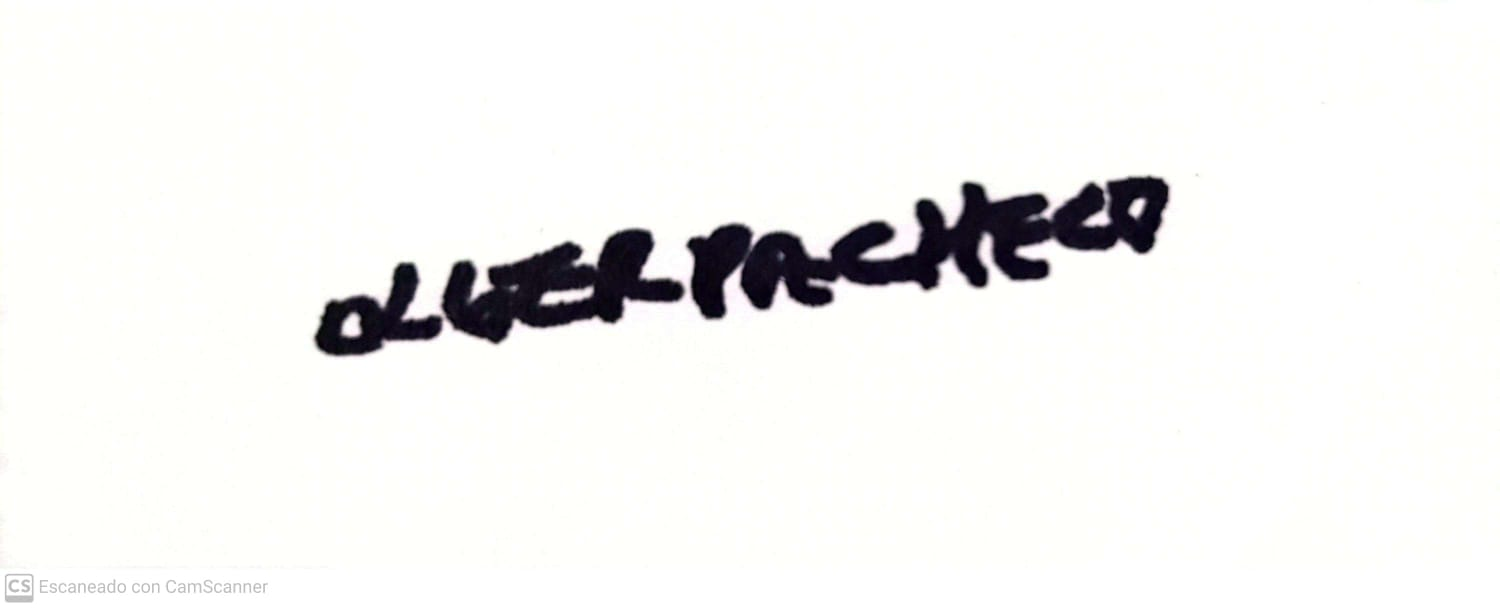 OLGER PACHECO
CS Escaneado con CamScanner